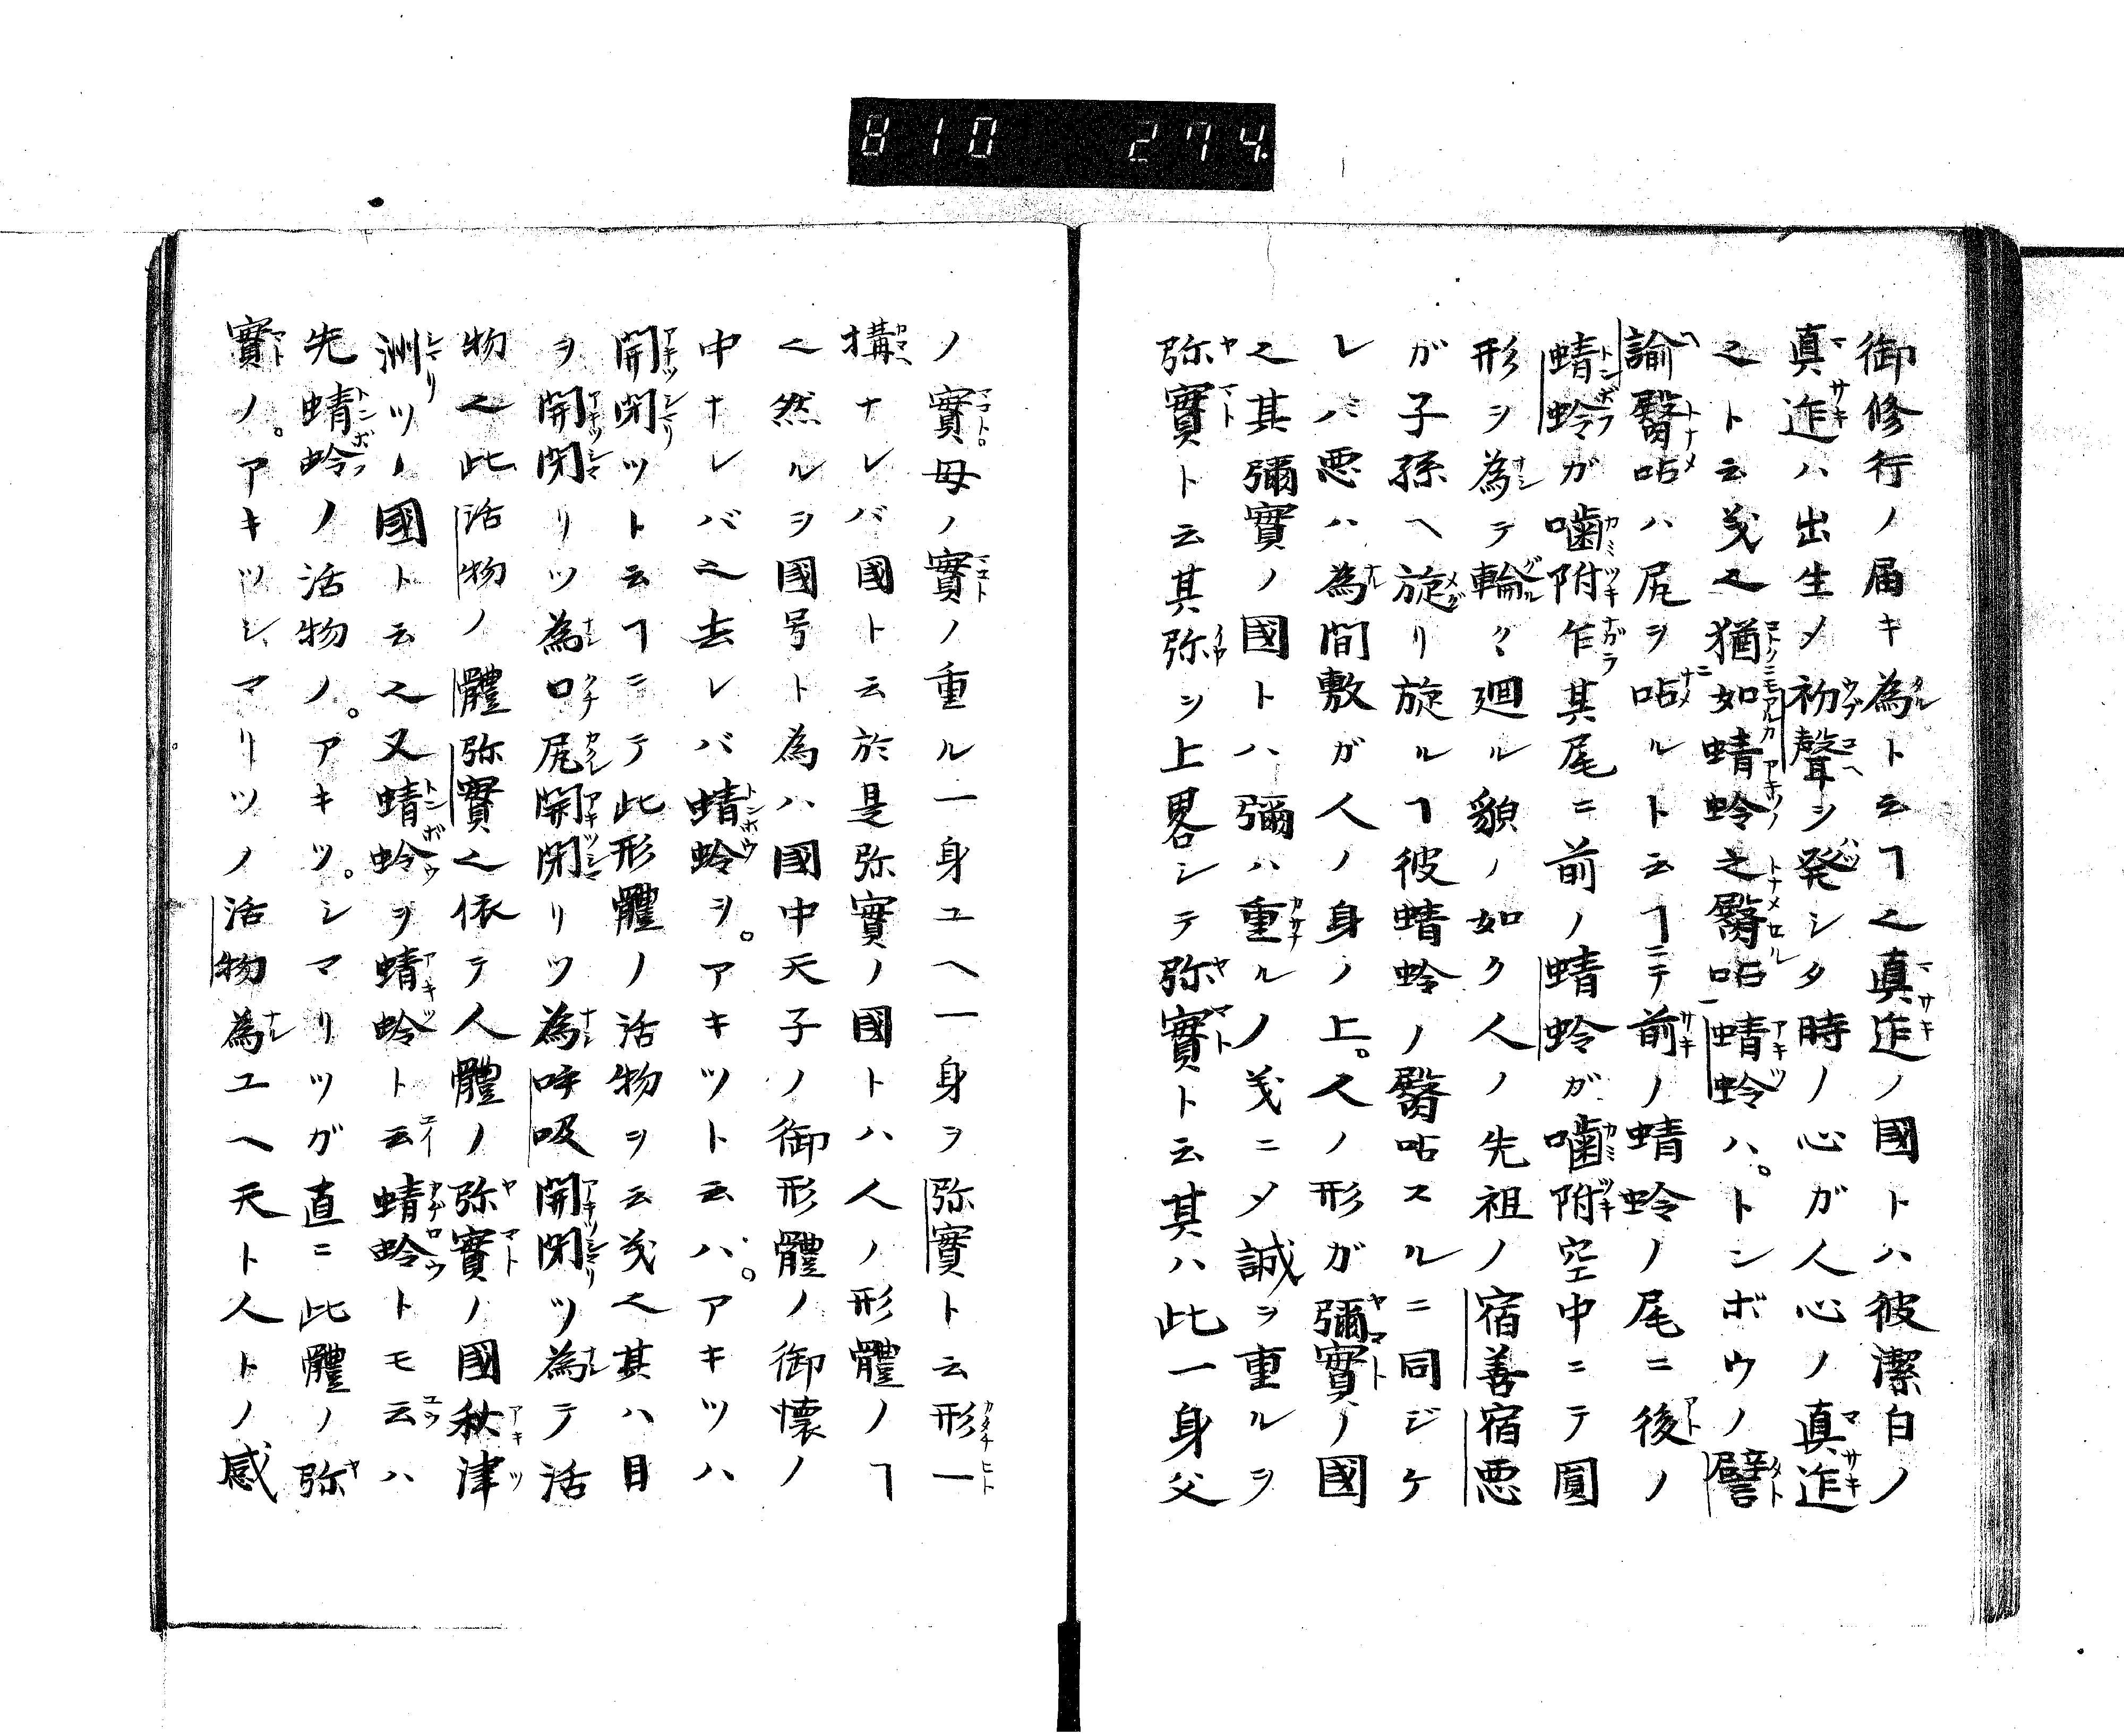 810 274.
御修行ノ届キ為ト云ヿ之真迮ノ國トハ彼潔白ノ
真迮ハ出生メ初聲シ発シタ時ノ心ガ人心ノ真迮
之ト云義之猶如蜻蛉之臀呫蜻蛉ハ。トンボウノ譬
諭臀呫ハ尻ヲ呫ルト云ヿニテ前ノ蜻蛉ノ尾ニ後ノ
蜻蛉ガ噛附乍其尾ニ前ノ蜻蛉ガ噛附空中ニテ圓
形ヲ為テ輪々廻ル貌ノ如ク人ノ先祖ノ宿善宿悪
ガ子孫ヘ旋リ旋ルヿ彼蜻蛉ノ臀呫スルニ同ジケ
レバ悪ハ為間敷ガ人ノ身ノ上。人ノ形ガ彌實ノ國
之其彌實ノ國トハ彌ハ重ルノ義ニメ誠ヲ重ルヲ
弥實ト云其弥シ上畧シテ弥實ト云其ハ此一身父
ノ實母ノ實ノ重ル一身ユヘ一身ヲ弥實ト云形一
搆ナレバ國ト云於是弥實ノ國トハ人ノ形體ノヿ
之然ルヲ國号ト為ハ國中天子ノ御形體ノ御懐ノ
中ナレバ之去レバ蜻蛉ヲ。アキツト云ハ。アキツハ
開閉ツト云ヿニテ此形體ノ活物ヲ云義之其ハ目
ヲ開閉リツ為口尻開閉リツ為呼吸開閉ツ為テ活
物之此活物ノ體弥實之依テ人體ノ弥實ノ國秋津
洲ツノ國ト云之又蜻蛉ヲ蜻蛉ト云蜻蛉トモ云ハ
先蜻蛉ノ活物ノ。アキツ。シマリツガ直ニ此體ノ弥
實ノ。アキツシマリツノ活物為ユヘ天ト人トノ感